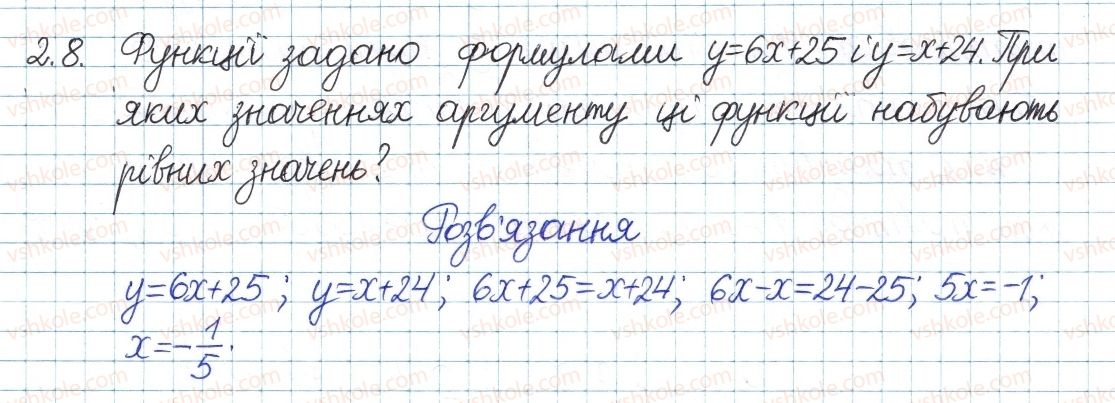 2.8. Функції задано формулами y=6x+25 і y=x+24. При
яких значеннях аргументу ці функції набувають
рівних значень?
Розв'язання
y=6x+25; y=x+24; 6x+25=x+24; 6x-x=24-25; 5x=-1;
x=-1/5.